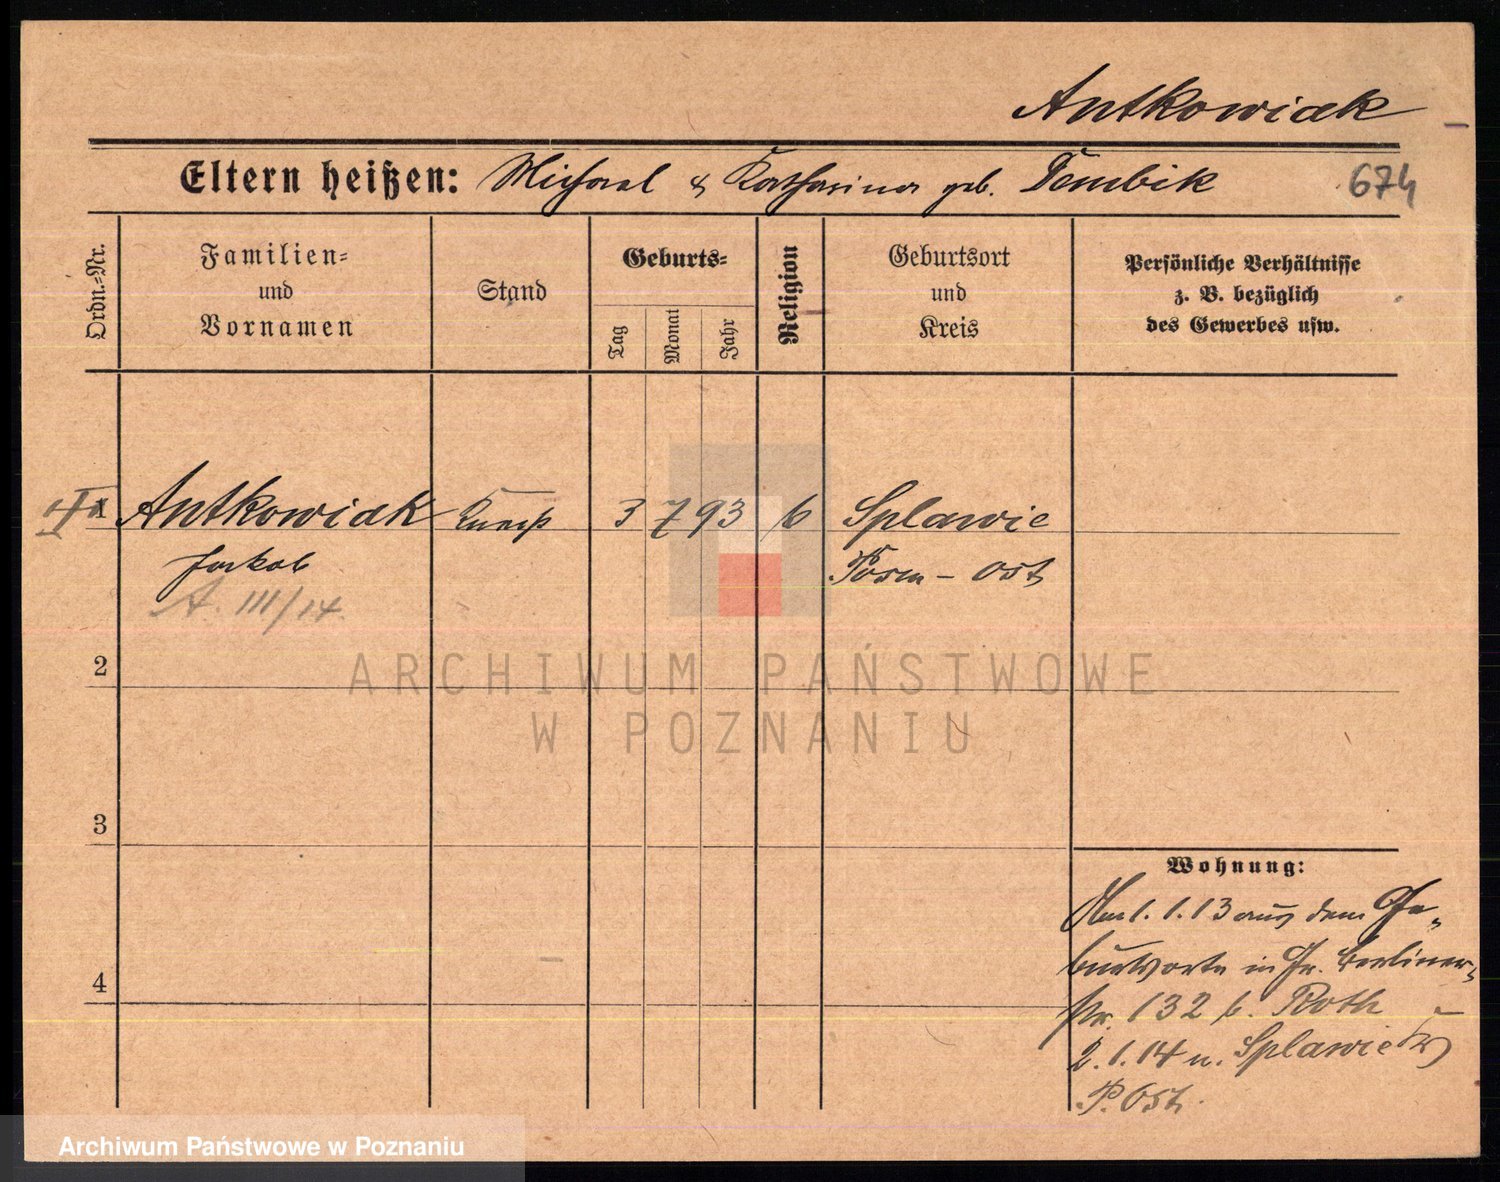 Antkowiak
Eltern heißen: Michael & Katharina geb. Dembik 674
Ordn.-Nr.
Familien-
und
Vornamen
Stand
Geburts-
Tag
Monat
Jahr
Religion
Geburtsort
und
Kreis
Persönliche Verhältnisse
z. B. bezüglich
des Gewerbes usw.
1 Antkowiak Knecht 3 7 93 k Splawie
Jakob Posen - Ost
A. III/14.
ARCHIWUM PAŃSTWOWE
W POZNANIU
2
3
4
Wohnung:
1.1.13 aus dem Ge-
burtsorte in Gr. Berliner-
str. 132 b. Roth
2.1.14 n. Splawie Kr
P. Ost.
Archiwum Państwowe w Poznaniu